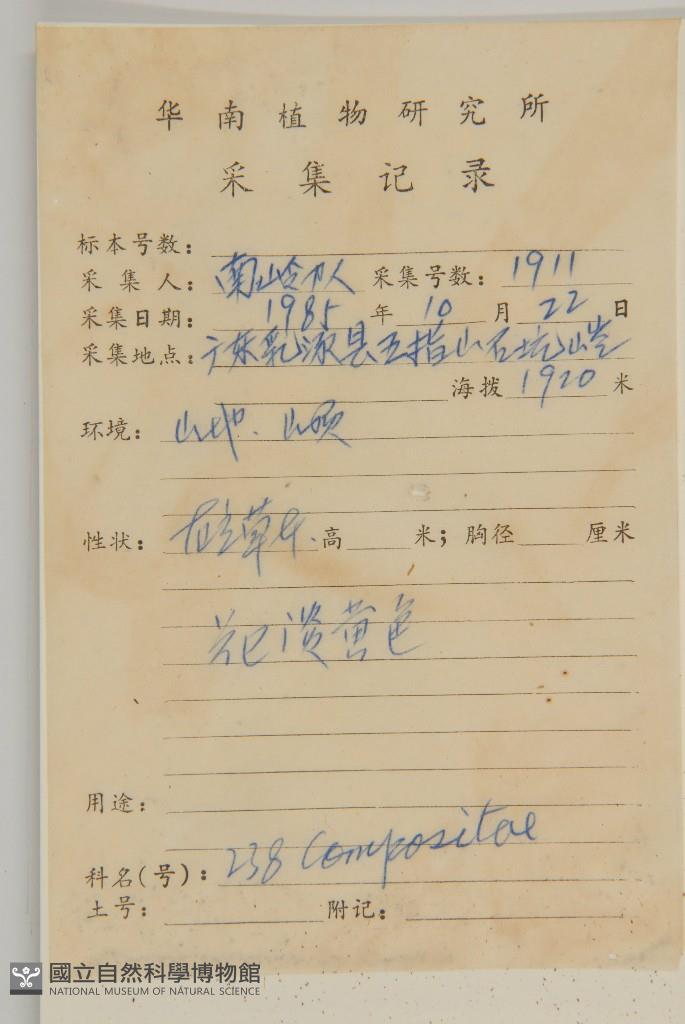 华南植物研究所
采集记录
标本号数：
采集人：南岭队 采集号数：1911
采集日期：1985年10月22日
采集地点：广东乳源县五指山石坑崆
海拨1920米
环境：山地．山顶
性状：直立草本．高 米；胸径 厘米
花淡黄色
用途：
科名(号)：238 Compositae
土号： 附记：
國立自然科學博物館
NATIONAL MUSEUM OF NATURAL SCIENCE